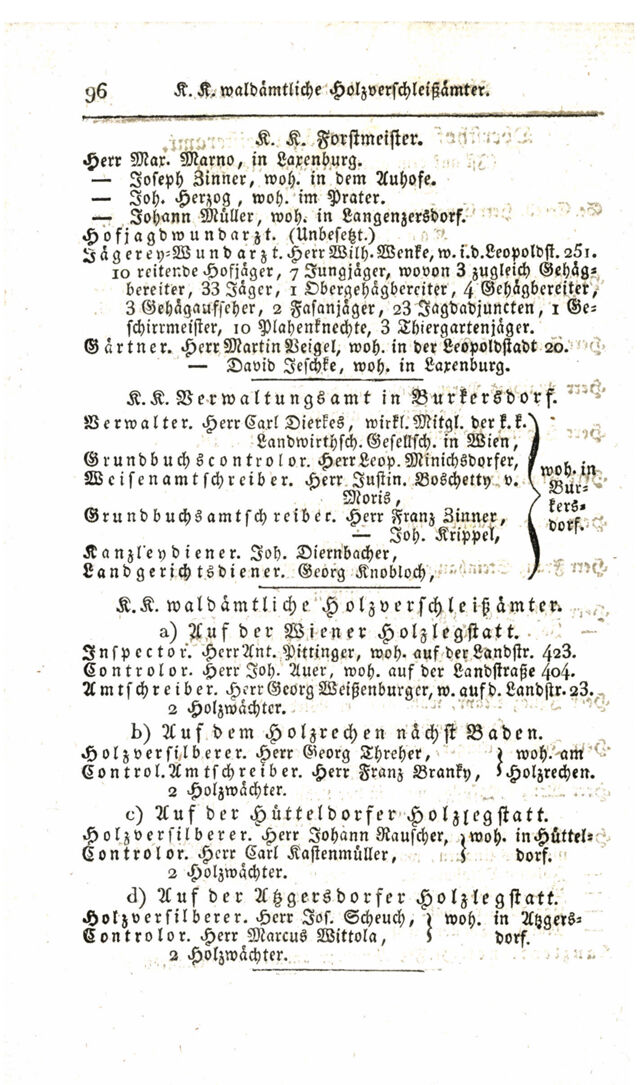 96 K. K. waldämtliche Holzverschleißämter.
K. K. Forstmeister.
Herr Max. Marno, in Laxenburg.
— Joseph Zinner, woh. in dem Auhofe.
— Joh. Herzog, woh. im Prater.
— Johann Müller, woh. in Langenzersdorf.
Hofjagdwundarzt. (Unbesetzt.)
Jägerey-Wundarzt. Herr Wilh. Wenke, w. i. d. Leopoldst. 251.
10 reitende Hofjäger, 7 Jungjäger, wovon 3 zugleich Gehäg-
bereiter, 33 Jäger, 1 Obergehägbereiter, 4 Gehägbereiter,
3 Gehägaufseher, 2 Fasanjäger, 23 Jagdadjuncten, 1 Ge-
schirrmeister, 10 Plahenknechte, 3 Thiergartenjäger.
Gärtner. Herr Martin Veigel, woh. in der Leopoldstadt 20.
— David Jeschke, woh. in Laxenburg.
K. K. Verwaltungsamt in Burkersdorf.
Verwalter. Herr Carl Dierkes, wirkl. Mitgl. der k. k.
Landwirthsch. Gesellsch. in Wien,
Grundbuchscontrolor. Herr Leop. Minichsdorfer,
Weisenamtschreiber. Herr Justin. Boschetty v.
Moris,
Grundbuchsamtschreiber. Herr Franz Zinner,
— Joh. Krippel,
Kanzleydiener. Joh. Diernbacher,
Landgerichtsdiener. Georg Knobloch,
woh. in
Bur-
kers-
dorf.
K. K. waldämtliche Holzverschleißämter.
a) Auf der Wiener Holzlegstatt.
Inspector. Herr Ant. Pittinger, woh. auf der Landstr. 423.
Controlor. Herr Joh. Auer, woh. auf der Landstraße 404.
Amtschreiber. Herr Georg Weißenburger, w. auf d. Landstr. 23.
2 Holzwächter.
b) Auf dem Holzrechen nächst Baden.
Holzversilberer. Herr Georg Threher, } woh. am
Control. Amtschreiber. Herr Franz Branky, } Holzrechen.
2 Holzwächter.
c) Auf der Hütteldorfer Holzlegstatt.
Holzversilberer. Herr Johann Rauscher, } woh. in Hüttel-
Controlor. Herr Carl Kastenmüller, } dorf.
2 Holzwächter.
d) Auf der Atzgersdorfer Holzlegstatt.
Holzversilberer. Herr Jos. Scheuch, } woh. in Atzgers-
Controlor. Herr Marcus Wittola, } dorf.
2 Holzwächter.